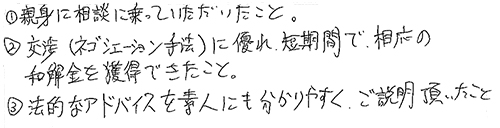 ①親身に相談に乗っていただいたこと。
②交渉（ネゴシエーション手法）に優れ、短期間で、相応の
和解金を獲得できたこと。
③法的なアドバイスを素人にも分かりやすく、ご説明頂いたこと